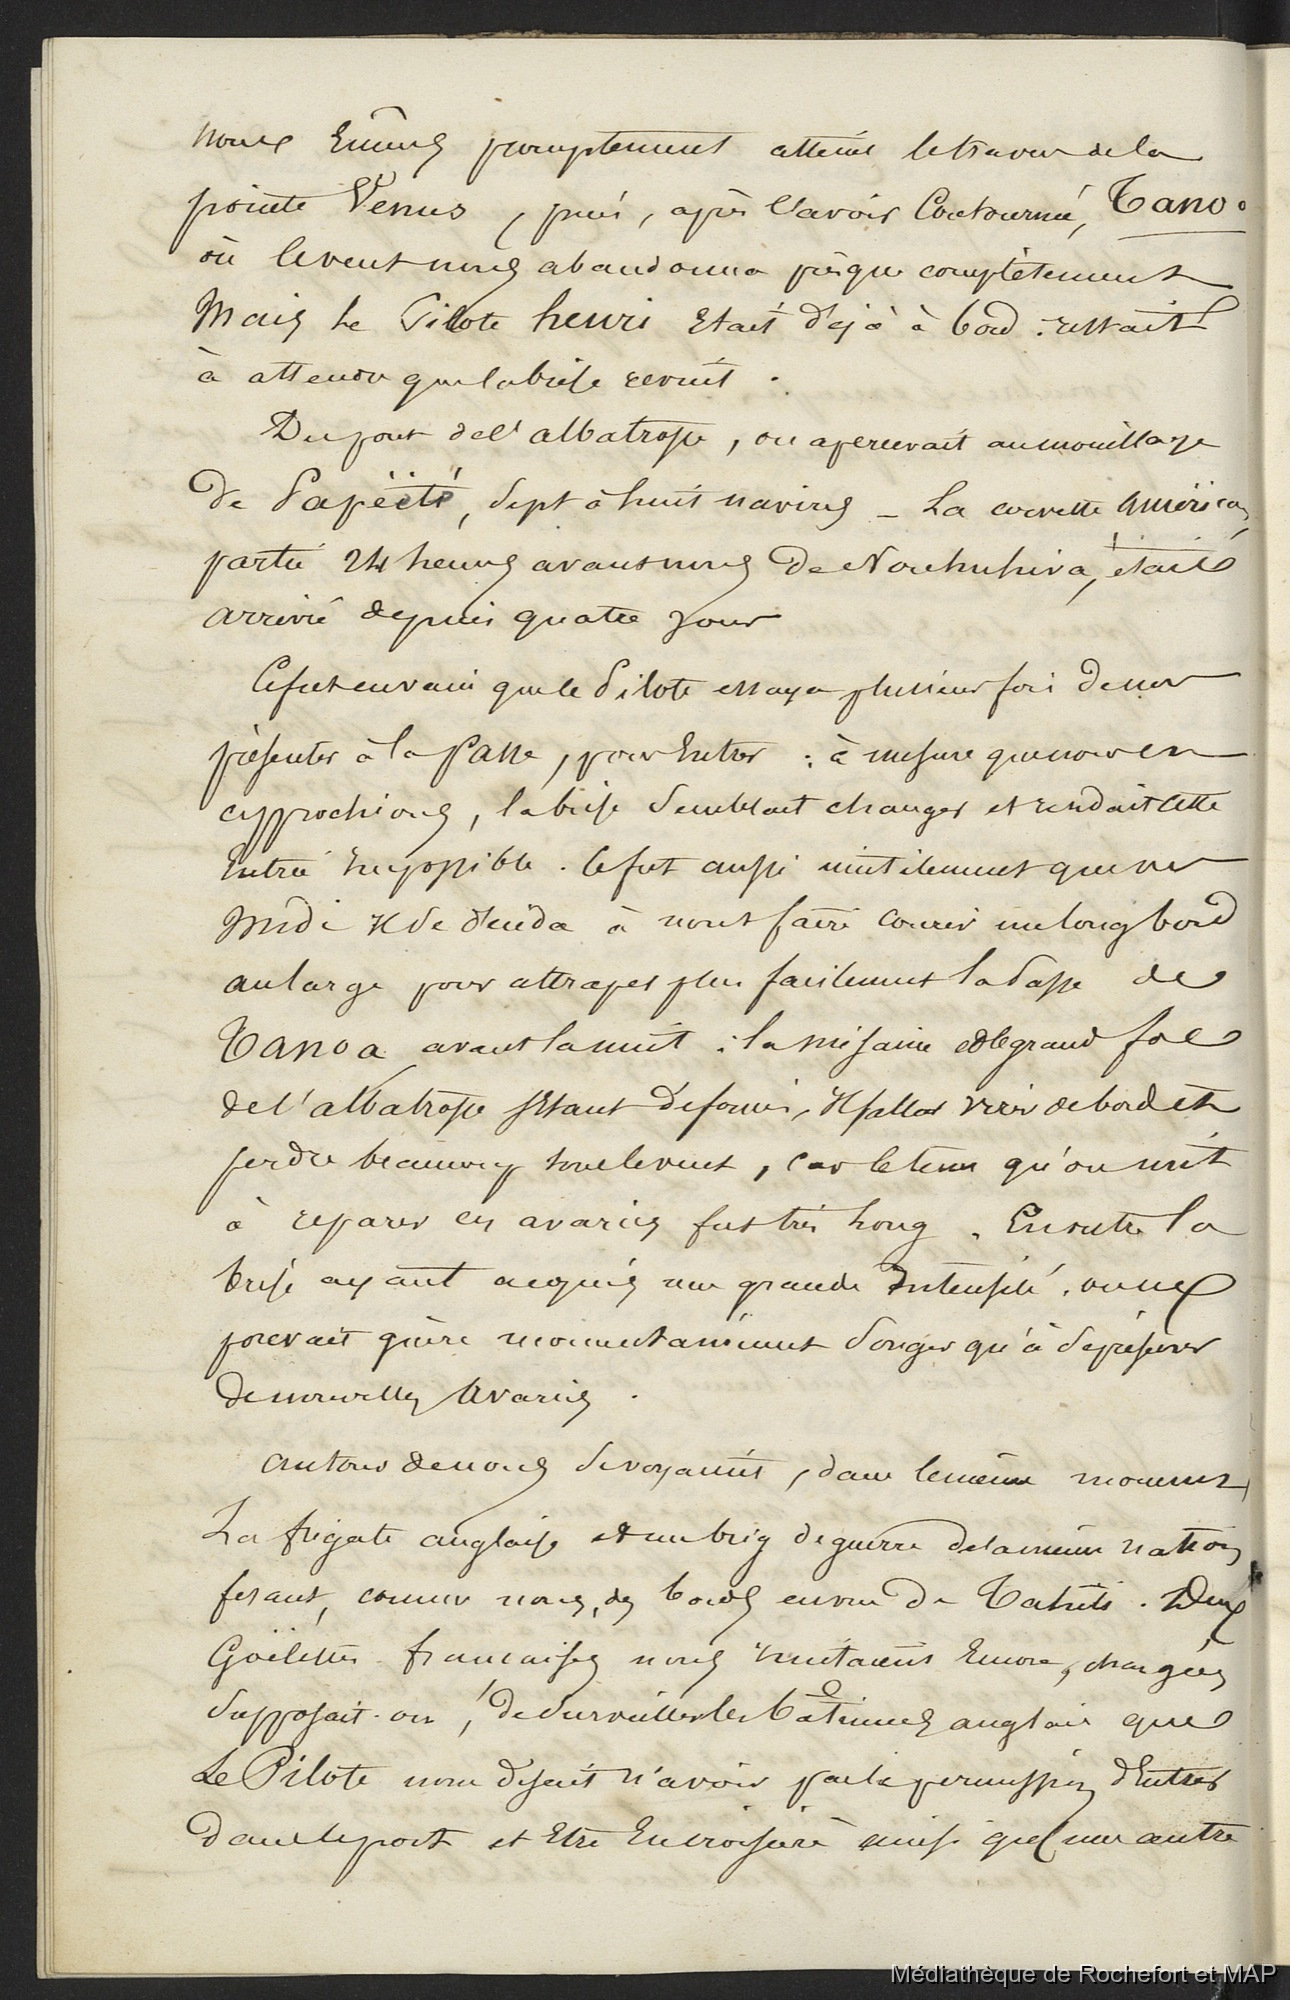 nous Eûmes promptement atteint le travers de la
pointe Vénus, puis, après l'avoir Contourné, Tanoa
où le vent nous abandonna presque complètement
Mais le Pilote henri Etait déjà à bord : restait
à attendre que la brise revint.
Du pont de l'albatrosse, on apercevait au mouillage
de Papéété, Sept à huit navires _ La corvette américaine
partie 24 heures avant nous de Nouhuhiva, était
arrivée depuis quatre jours
Ce fut en vain que le Pilote essaya plusieurs fois de nous
présenter à la Passe, pour Entrer : à mesure que nous en
approchions, la brise Semblait changer et rendait cette
Entrée Impossible. Ce fut aussi inutilement que vers
Midi Il se décida à nous faire courir un long bord
au large pour attraper plus facilement la Passe de
Tanoa avant la nuit : la misaine et le grand foc
de l'albatrosse s'étant défoncés, Il fallut virer de bord et
perdre beaucoup sous le vent, car le tems qu'on mit
à réparer ces avaries fut très long. Ensuite la
brise ayant acquis une grande Intensité, on ne
pouvait guère momentanément Songer qu'à Se préserver
de nouvelles Avaries.
autour de nous Se voyaient, dans le même moment
La frégate anglaise et un brig de guerre de la même nation
fesant, comme nous, des bords en vue de Tahiti. Deux
Goëlettes françaises nous imitaient Encore, chargées
Supposait-on, de Surveiller les bâtiments anglais que
Le Pilote nous disait n'avoir pas la permission d'Entrer
dans le port et Etre En croisière ainsi qu'une autre
Médiathèque de Rochefort et MAP